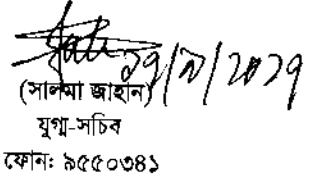 ১৭/৯/২০১৭
(সালমা জাহান)
যুগ্ম-সচিব
ফোনঃ ৯৫৫০৩৪১